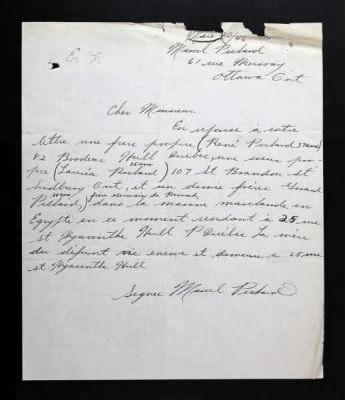 Mars 20/46
E. F.
Marcel Pichard
61 rue Murray
Ottawa Ont
Cher Monsieur
En reponse à votre
lettre une frere propre (René Pichard 37 ans)
82 Brodeur Hull Quebec, une soeur pro-
pre (Lauria Pichard) 107 St Brandon st
Sudbury Ont, et un demie frère Gerard
Pichard) dans la marine marchande en
Egypte en ce moment residant à 25 rue
st Hyacinthe Hull P Quebec La mère
du défunt vie encore et demeure a 25 rue
st Hyacinthe Hull
Signee Marcel Pichard